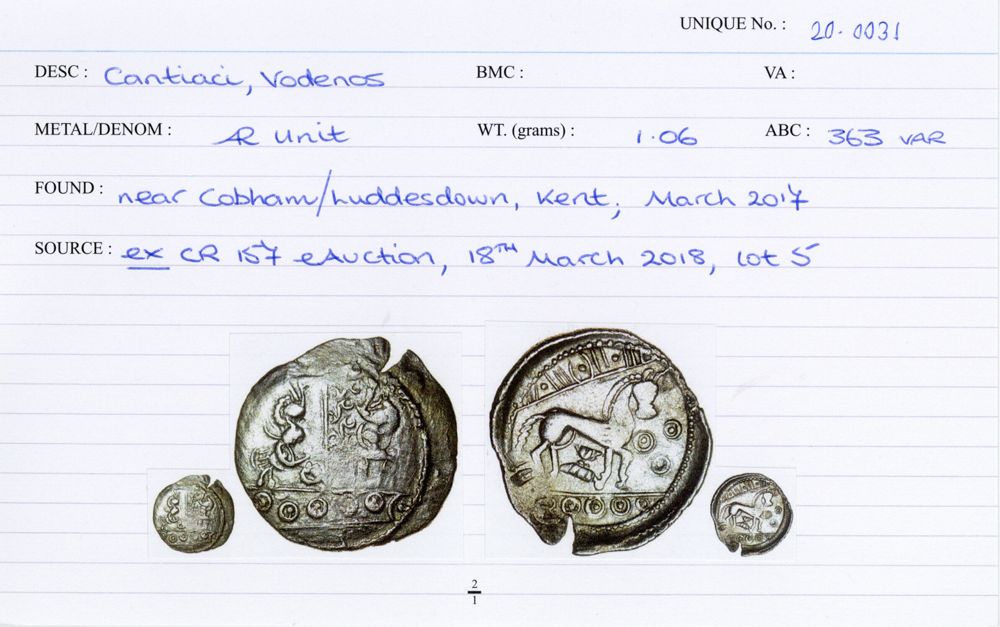 UNIQUE No. : 20.0031
DESC : Cantiaci, Vodenos BMC : VA :
METAL/DENOM : AR Unit WT. (grams) : 1.06 ABC : 363 VAR
FOUND : near Cobham/Luddesdown, Kent, March 2017
SOURCE : ex CR 157 eAuction, 18TH March 2018, lot 5
2
1